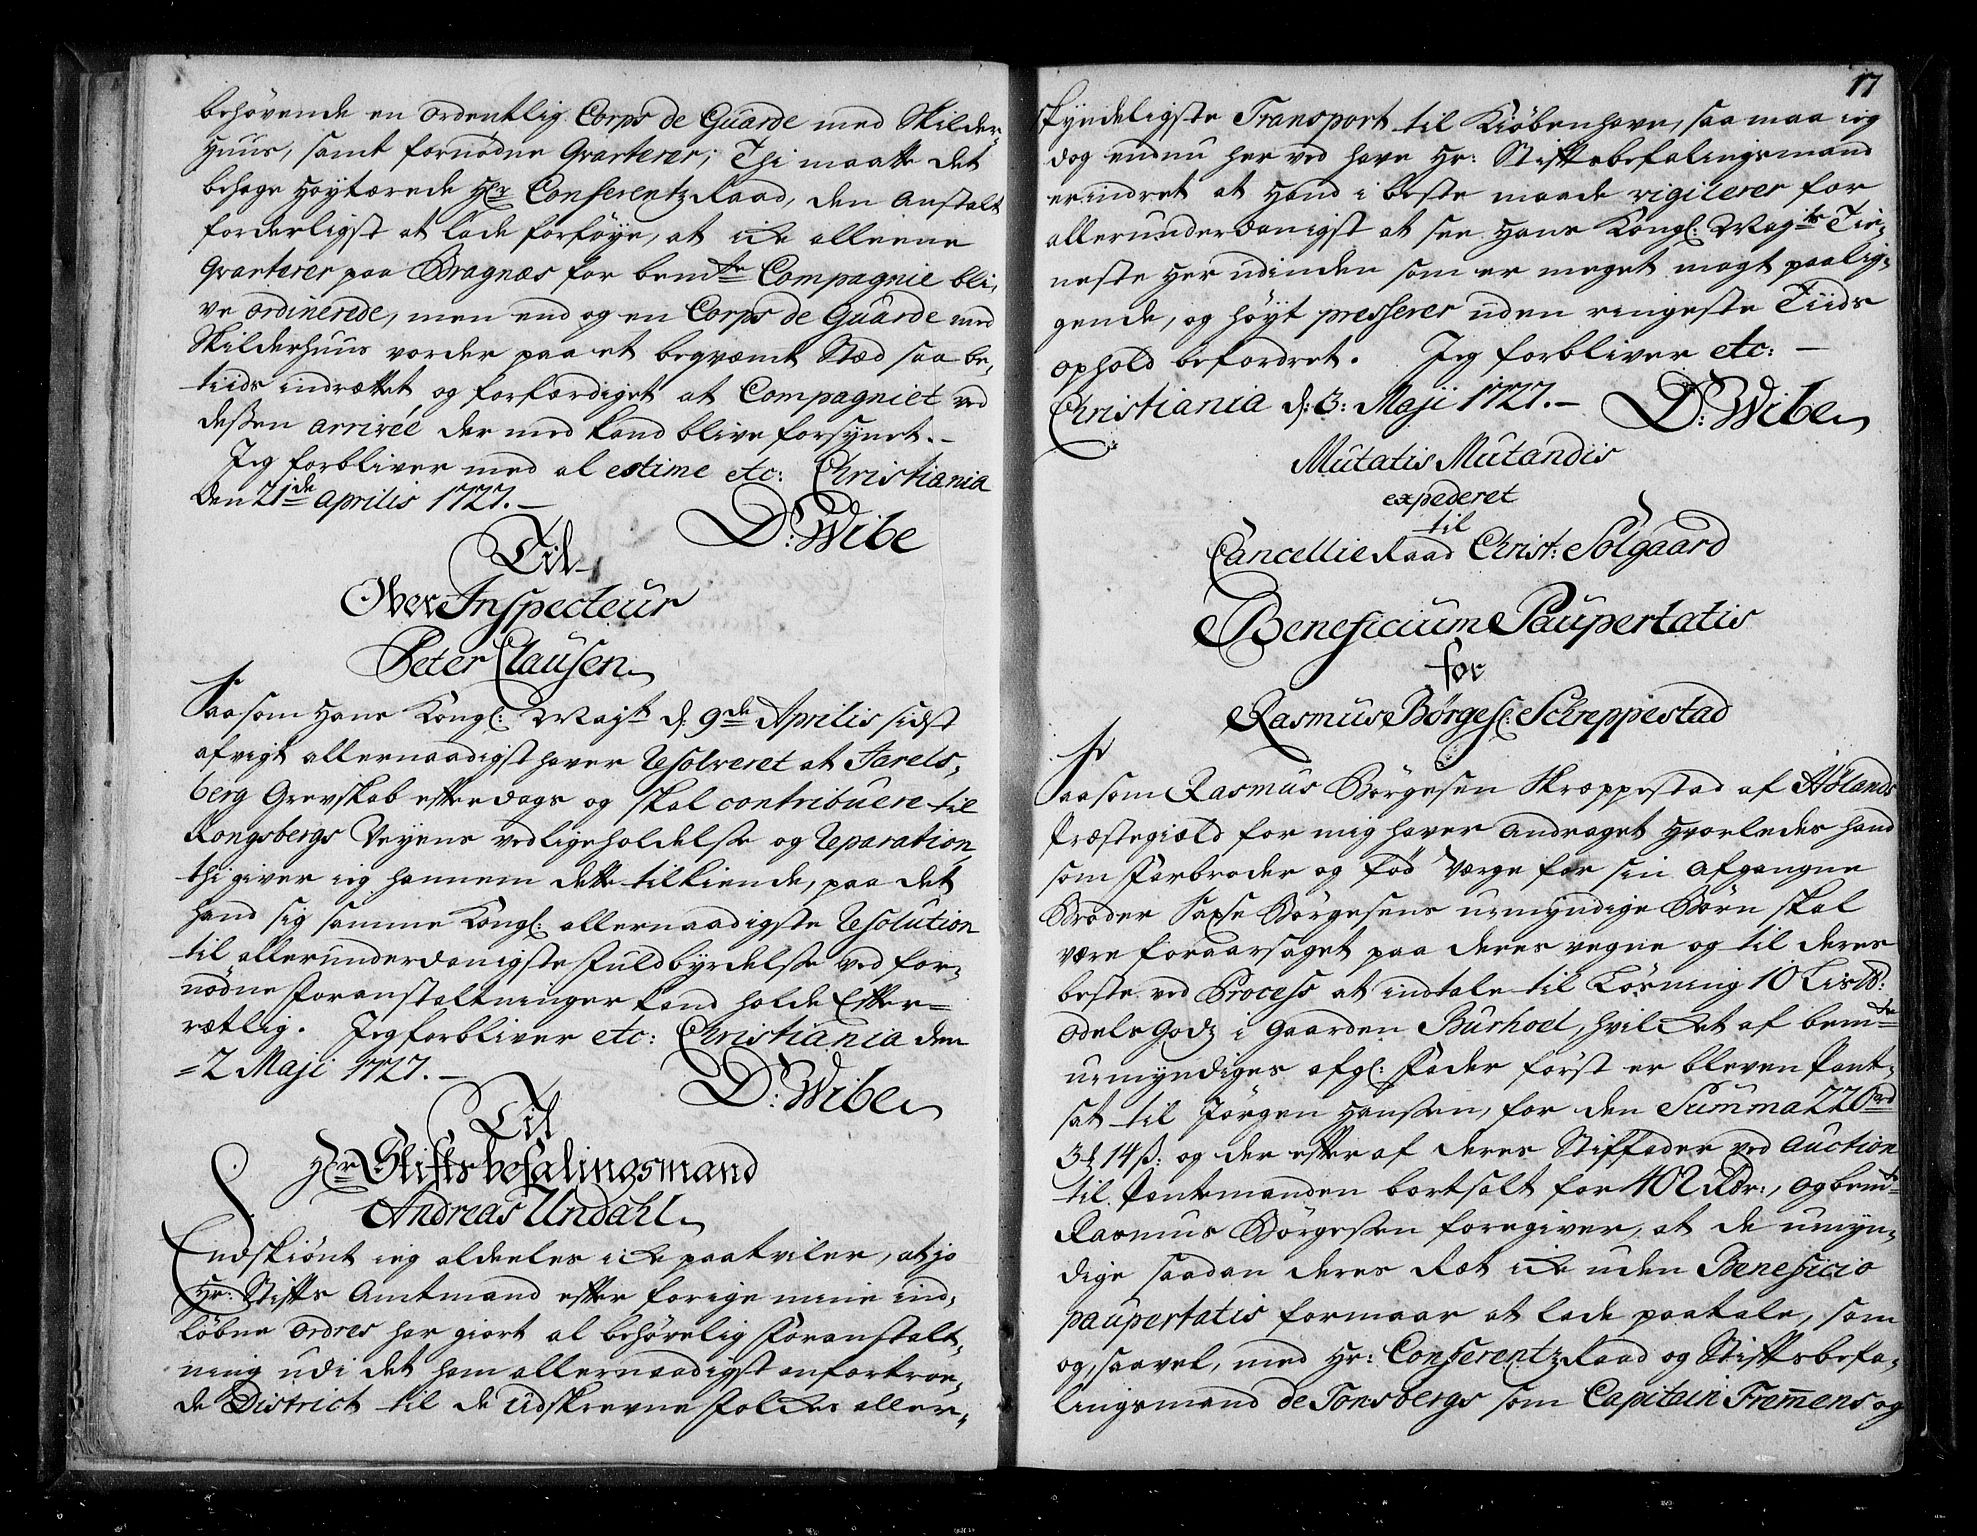 behøvende en ordentlig Corps de Guarde med Skilder-
Huus, samt fornødne Qvarterer; Thi maatte det
behage Høytærede Hr Conferentz Raad, den Anstalt
forderligst at lade forføye, at icke alleene
Qvarterer paa Bragnæs for bemte Compagnie bli-
ve ordinerede, men end og en Corps de Guarde med
Skilderhuus vorder paa et beqvæmt Stæd saa be-
tiids indrættet og forfærdiget at Compagniet ved
dessen arriveé der med kand blive forsynet.-
Jeg forbliver med al estime etc: Christiania
den 21de Aprilis 1727.-
D: Wibe
Til
Ober Inspecteur
Peter Clausen
Saasom Hans Kongl: Mayt d: 9de Aprilis sidst
afvigt allernaadigst haver Resolveret at Jarels-
berg Grevskab efterdags og skal contribuere til
Kongsbergs Veyens vedligeholdelse og Reparation,
thi giver ieg hannem dette tilkiende, paa det
hand sig samme Kongl: allernaadigste Resolution
til allerunderdanigste Fuldbyrdelse ved for-
nødne Foranstaltninger kand holde Efter-
rætlig. Jeg forbliver etc: Christiania den
2 Maji 1727.-
D: Wibe
Til
Hr Stiftsbefalingsmand
Andreas Undahl
Endskiønt ieg aldeeles icke paatviler, at jo
Hr: Stifts Amtmand efter forige mine ind-
løbne ordres har giort al behørelig Foranstalt-
ning udi det ham allernaadigst anfortroe-
de District til de Udskrevne Folckes aller-
17
skyndeligste Transport til Kiøbenhavn, saa maa ieg
dog endnu her ved have Hr: Stiftsbefalingsmand
erindret at Hand i beste maade vigilerer for
allerunderdanigst at see Hans Kongl: Mayts Tie-
neste her udinden som er meget magt paalig-
gende, og høyt presserer uden ringeste Tiids
ophold befordret. Jeg forbliver etc:-
Christiania d: 3: Maji 1727.-
D: Wibe
Mutatis Mutandis
expederet
til
Cancellie Raad Christ: Solgaard
Beneficium Paupertatis
for
Rasmus Børges: Schreppestad
Saasom Rasmus Børgesen Skreppestad af Hølands
Præstegield for mig haver andraget hvorledes hand
som Farbroder og fød Værge for sin afgangne
Broder Saxse Børgesens umyndige Børn skal
være foraarsaget paa deres vegne og til deres
beste ved Process at indtale til Løsning 10 Lis℔:
Odels Godz i Gaarden Burhoel, hvilcket af bemte
umyndiges afgl: Fader først er bleven Pant-
sat til Jørgen Hanssen, for den Summa 226 rd
3 ₰ 14 ß: og der efter af deres Stiffader ved Auction
til Pantemanden bortsolt for 402 Rdr:, og bemte
Rasmus Børgessen foregiver, at de umyn-
dige saadan deres Ræt icke uden Beneficio
paupertatis formaar at lade paatale, som
og, saavel, med Hr: Conferentz Raad og Stiftsbefa-
lingsmand de Tonsbergs som Capitain Fremens og